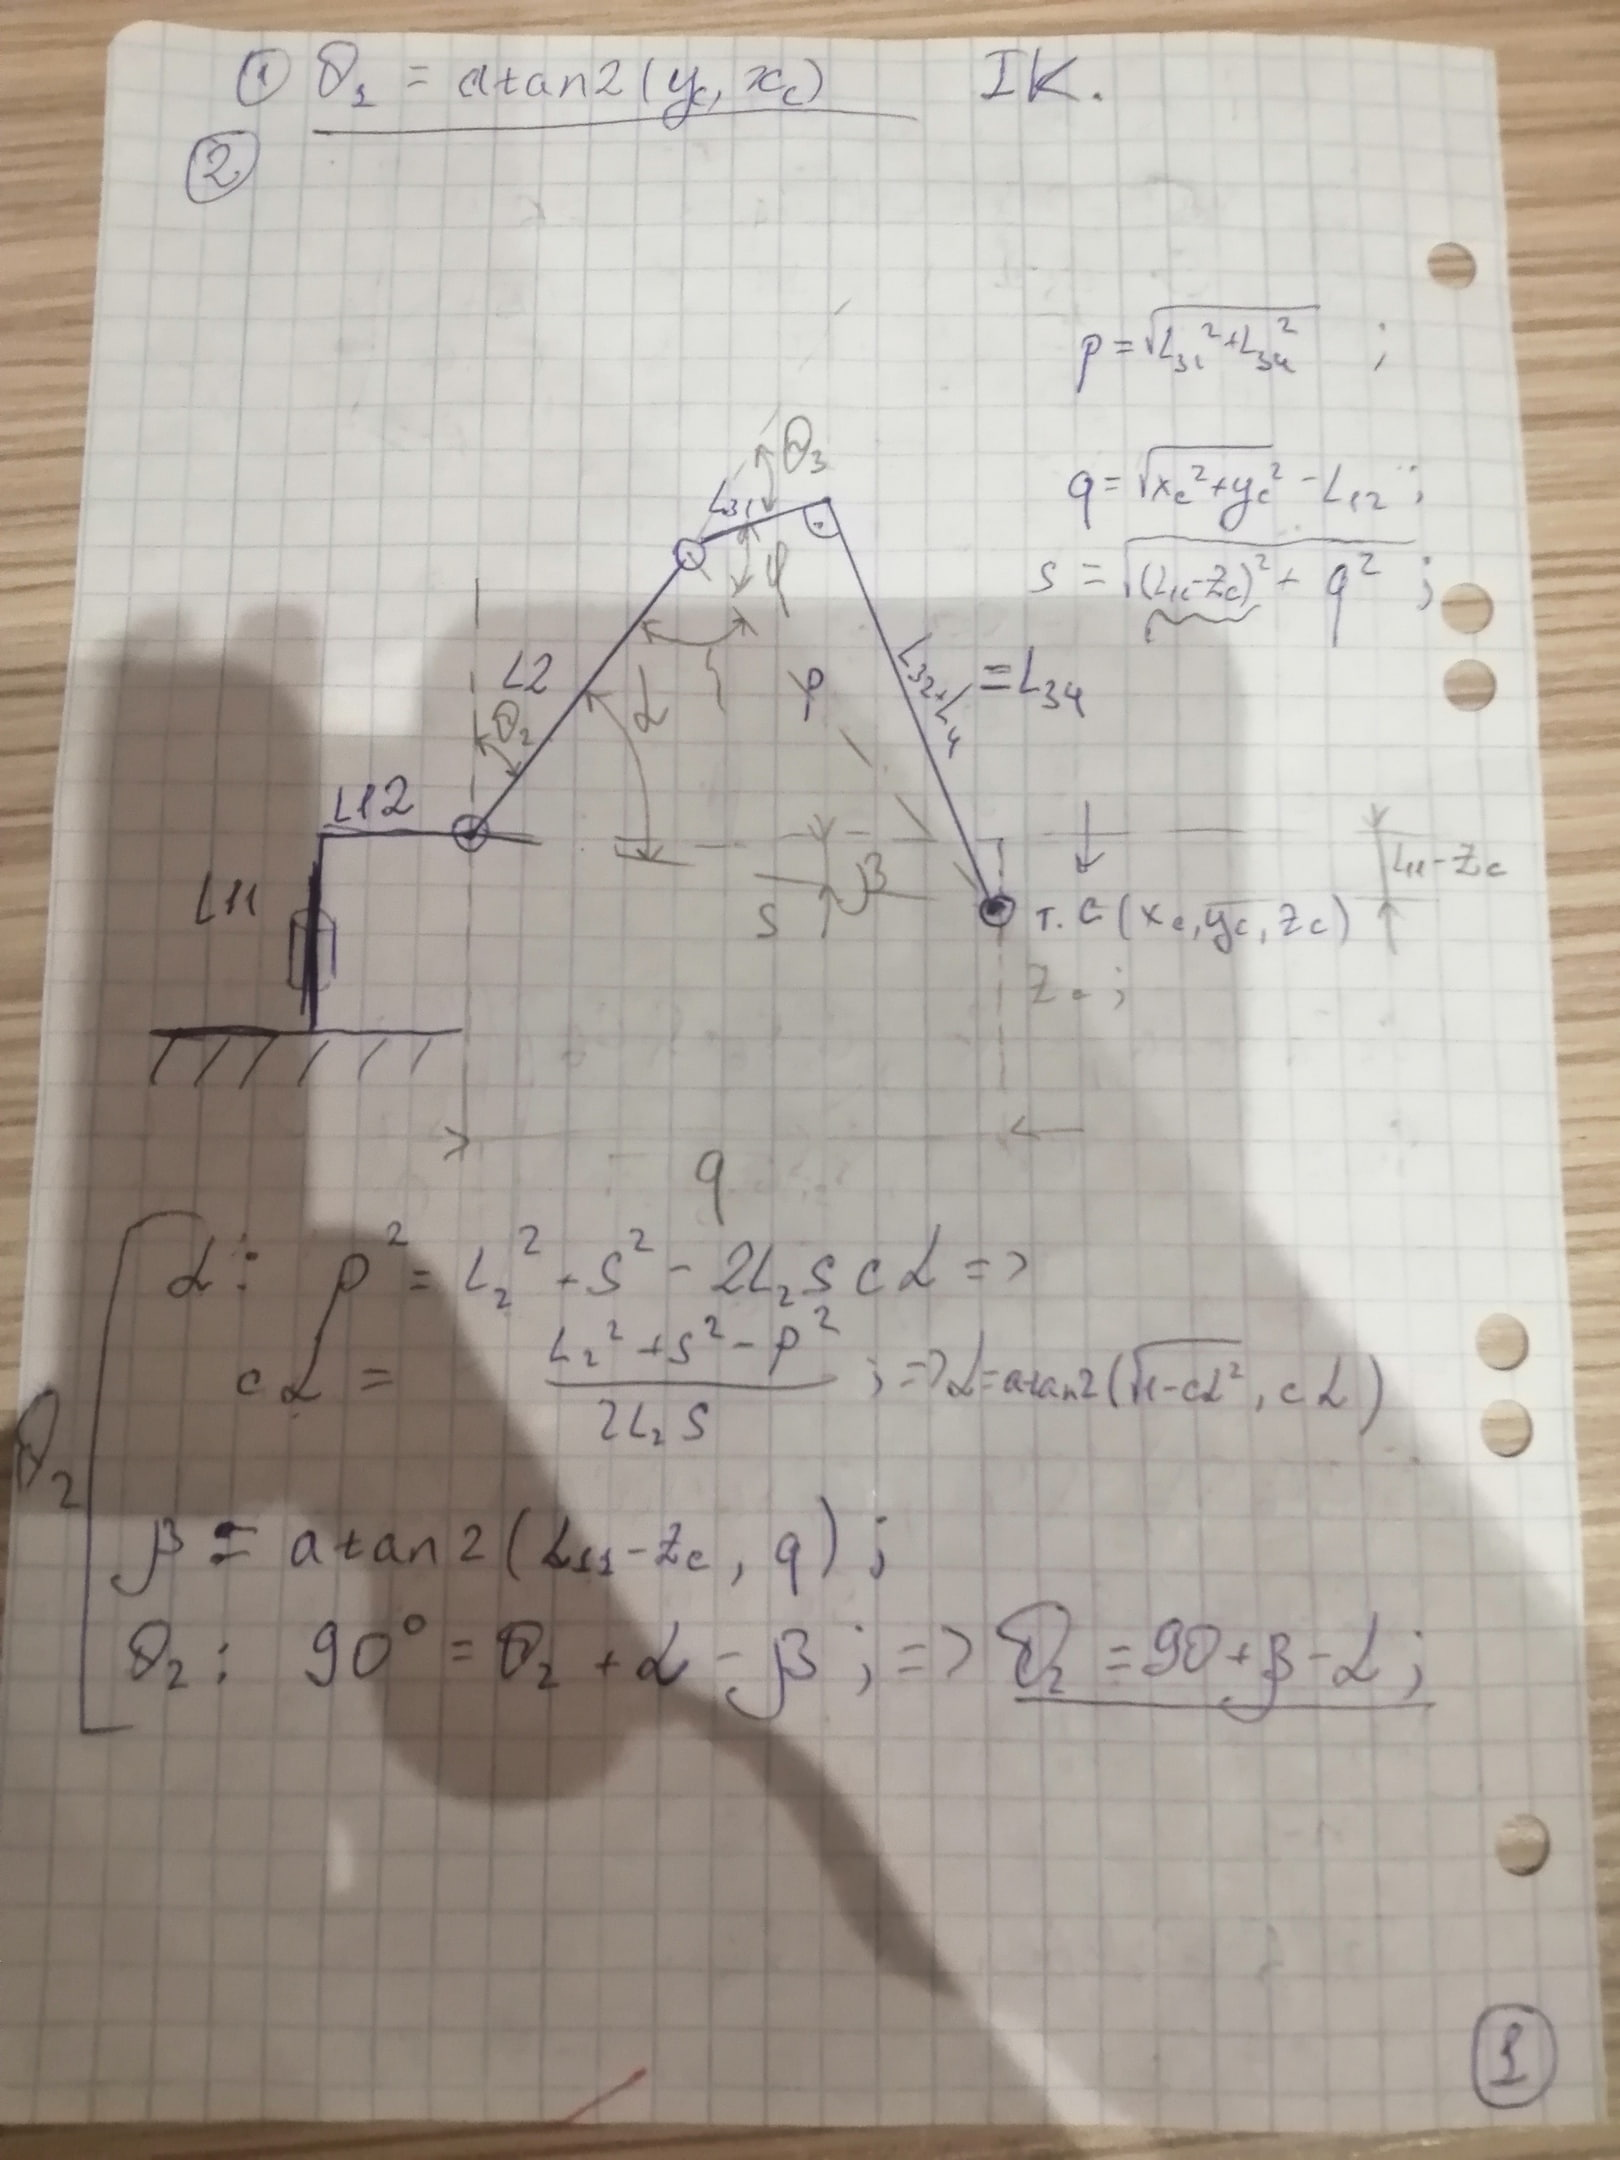 ① θ₁ = atan2(y_c, x_c)     IK.
②
p = √(L₃₁² + L₃₄²) ;
q = √(x_c² + y_c²) - L₁₂ ;
s = √((L₁₁ - z_c)² + q²) ;
θ₃
L₃₁
φ
L2
θ₂
α
ρ
L₃₂+L₄ = L₃₄
L12
L11
β
s
L₁₁ - z_c
т. C (x_c, y_c, z_c)
z_c ;
q
α: ρ² = L₂² + s² - 2L₂ s cα =>
cα = (L₂² + s² - ρ²) / (2L₂ s) ; => α = atan2(√(1-cα²), cα)
θ₂
β = atan2(L₁₁ - z_c, q) ;
θ₂ : 90° = θ₂ + α - β ; => θ₂ = 90 + β - α ;
1